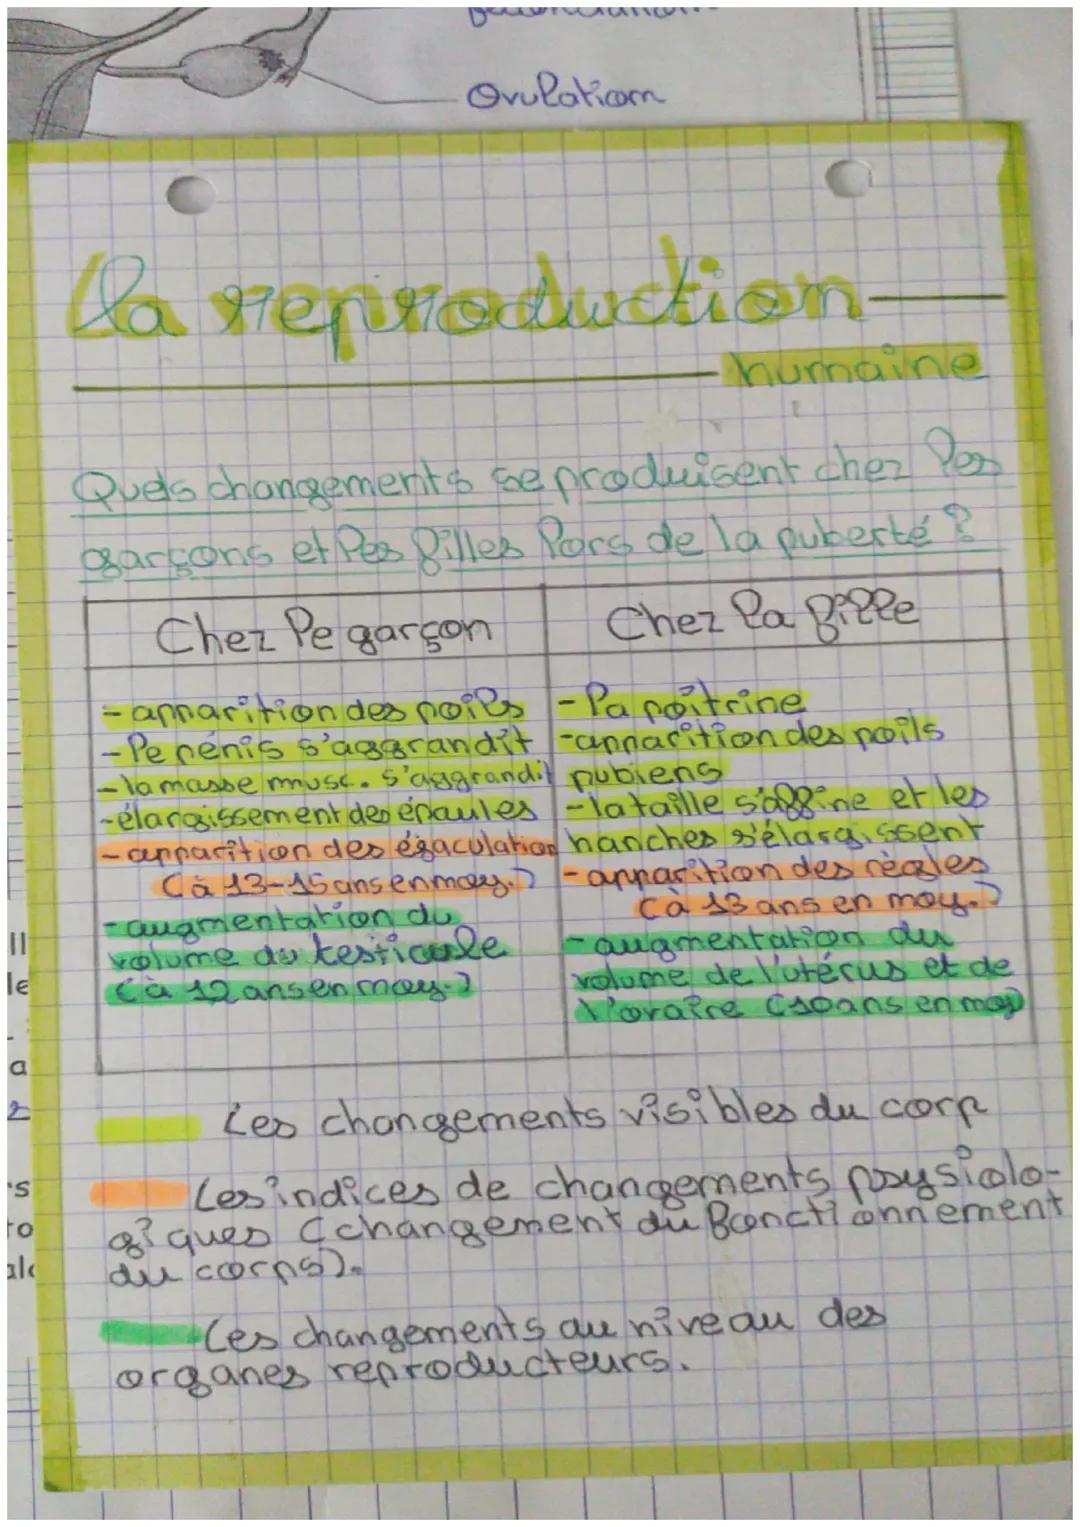 Ovulation
la reproduction
humaine
Quels changements se produisent chez les
garçons et les filles lors de la puberté ?
Chez le garçon
- apparition des poils
- le pénis s'aggrandit
- la masse musc. s'aggrandit
- élargissement des épaules
- apparition des éjaculation
(à 13-15 ans en moy.)
- augmentation du
volume du testicule
(à 12 ans en moy.)
Chez la fille
- la poitrine
- apparition des poils
pubiens
- la taille s'affine et les
hanches s'élargissent
- apparition des règles
(à 13 ans en moy.)
- augmentation du
volume de l'utérus et de
l'ovaire (10 ans en moy)
Les changements visibles du corp
Les indices de changements physiolo-
giques (changement du fonctionnement
du corps).
Les changements au niveau des
organes reproducteurs.